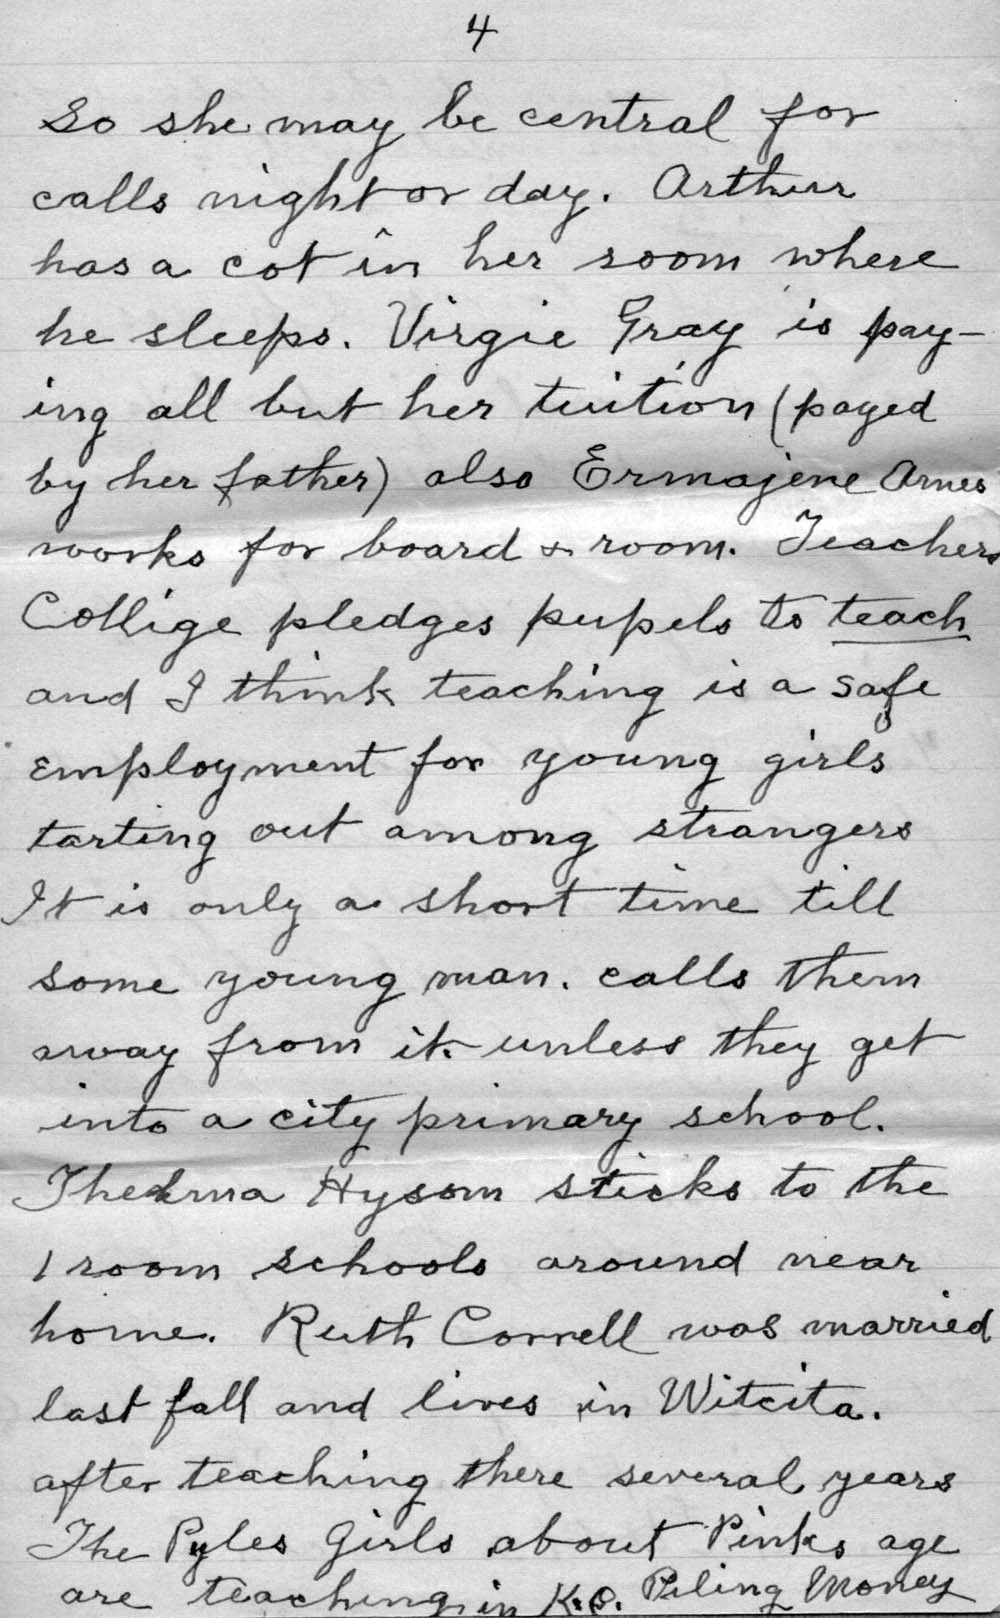 4
So she may be central for
calls night or day. Arthur
has a cot in her room where
he sleeps. Virgie Gray is pay-
ing all but her tuition (payed
by her father) also Ermajene Arnes
works for board & room. Teachers
Collige pledges pupels to teach
and I think teaching is a safe
employment for young girls
tarting out among strangers
It is only a short time till
some young man. calls them
away from it. unless they get
into a city primary school.
Thelma Hysom sticks to the
1 room schools around near
home. Ruth Correll was married
last fall and lives in Witcita.
after teaching there several years
The Pyles Girls about Pinks age
are teaching in K.C. Piling Money